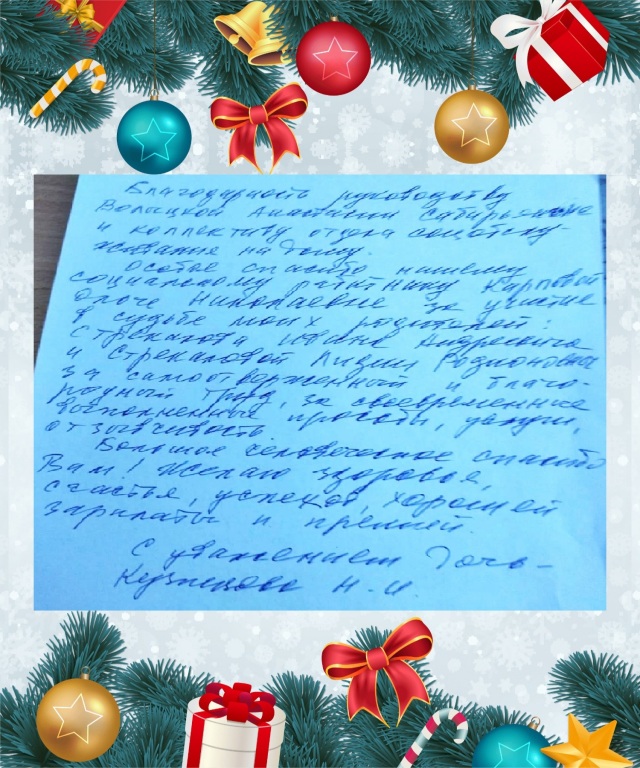 Благодарность руководству
Волыцкой Анастасии Сабирьяновне
и коллективу отдела соцобслу-
живания на дому.
Особое спасибо нашему
социальному работнику Карповой
Ольге Николаевне за участие
в судьбе моих родителей:
Стрекалова Ивана Андреевича
и Стрекаловой Лидии Родионовны
за самоотверженный и благо-
родный труд, за своевременные
выполненные просьбы, услуги,
отзывчивость.
Большое человеческое спасибо
Вам! Желаю здоровья,
счастья, успехов, хорошей
зарплаты и премией.
С уважением дочь-
Кузнецова Н.И.